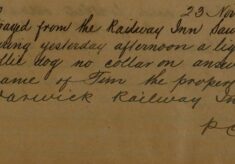 23 Nov
ayed from the Railway Inn
ing yesterday afternoon a lig
dle dog no collar on answ
ame of Tim the proper
arwick Railway In
P C